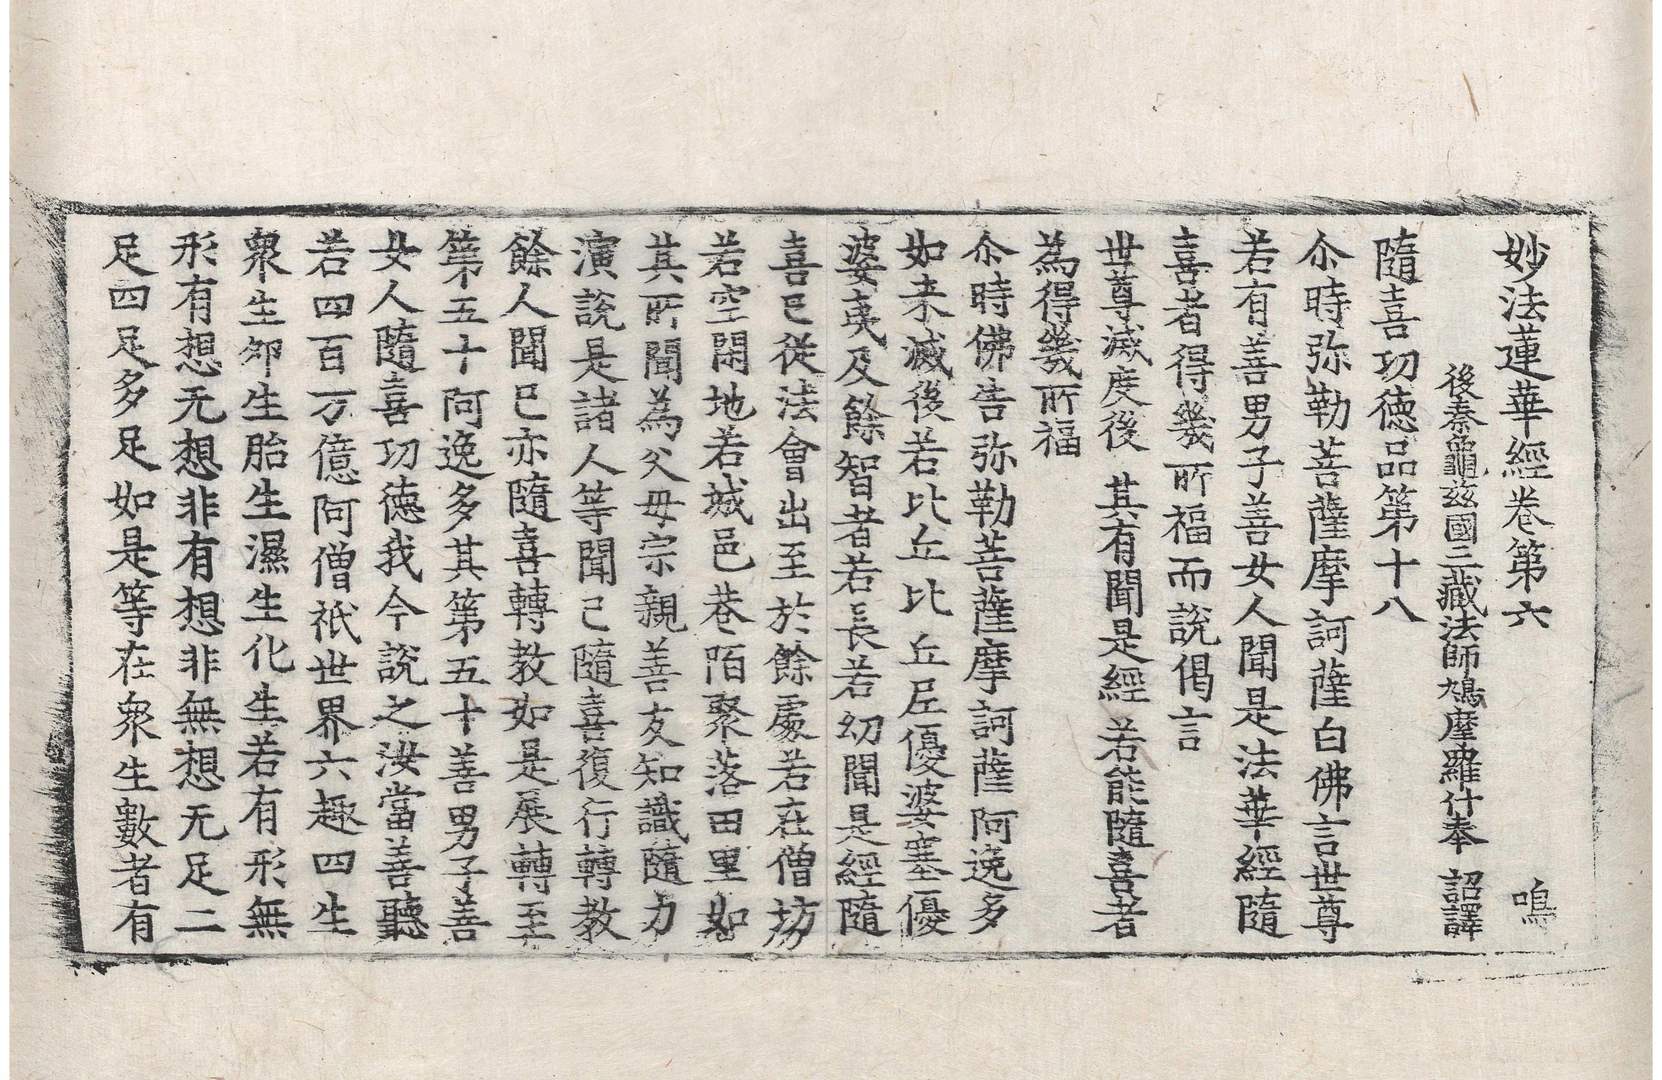 妙法蓮華經卷第六 鳴
後秦龜茲國三藏法師鳩摩羅什奉 詔譯
隨喜功德品第十八
尒時弥勒菩薩摩訶薩白佛言世尊
若有善男子善女人聞是法華經隨
喜者得幾所福而說偈言
世尊滅度後 其有聞是經 若能隨喜者
為得幾所福
尒時佛告弥勒菩薩摩訶薩阿逸多
如来滅後若比丘比丘尼優婆塞優
婆夷及餘智者若長若幼聞是經隨
喜已從法會出至於餘處若在僧坊
若空閑地若城邑巷陌聚落田里如
其所聞為父母宗親善友知識隨力
演說是諸人等聞已隨喜復行轉教
餘人聞已亦隨喜轉教如是展轉至
第五十阿逸多其第五十善男子善
女人隨喜功德我今說之汝當善聽
若四百万億阿僧祇世界六趣四生
衆生卵生胎生濕生化生若有形無
形有想无想非有想非無想无足二
足四足多足如是等在衆生數者有